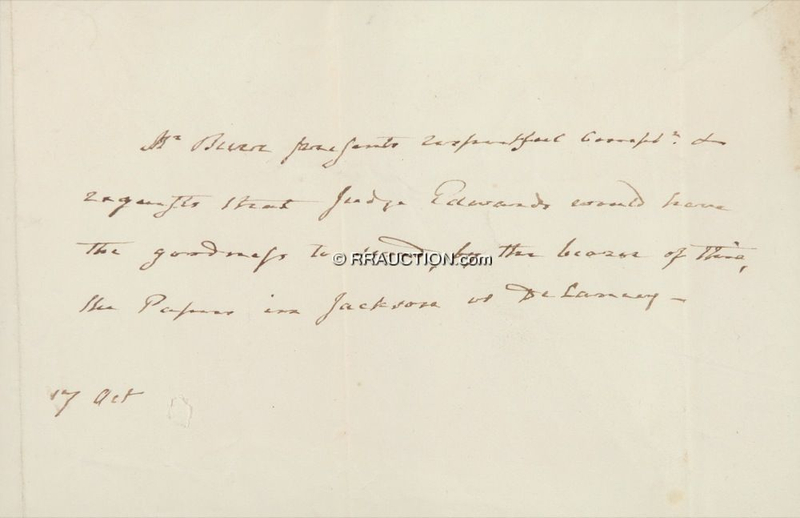 Mr Burr presents respectful Complts. &
requests that Judge Edwards would have
the goodness to send, by the bearer of this,
the Papers in Jackson vs DeLancey —
17 Oct
© RRAUCTION.com